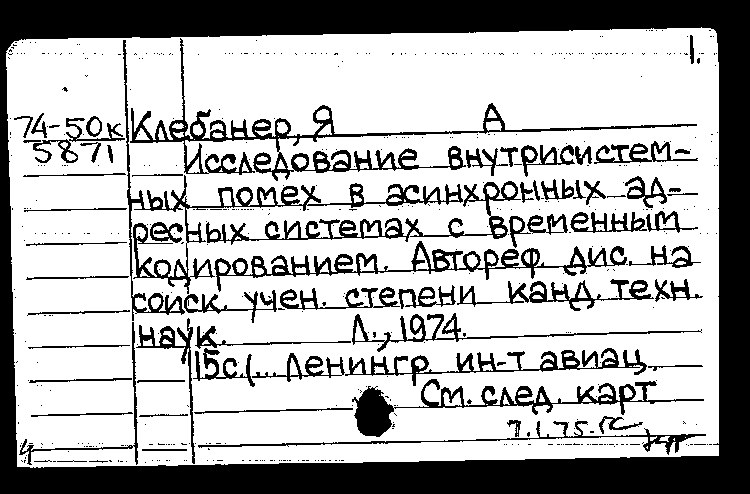 1.
74-50к Клебанер, Я А
5871 Исследование внутрисистем-
ных помех в асинхронных ад-
ресных системах с временным
кодированием. Автореф. дис. на
соиск. учен. степени канд. техн.
наук. Л., 1974.
15с. (... Ленингр. ин-т авиац.
См. след. карт.
7.1.75.
4